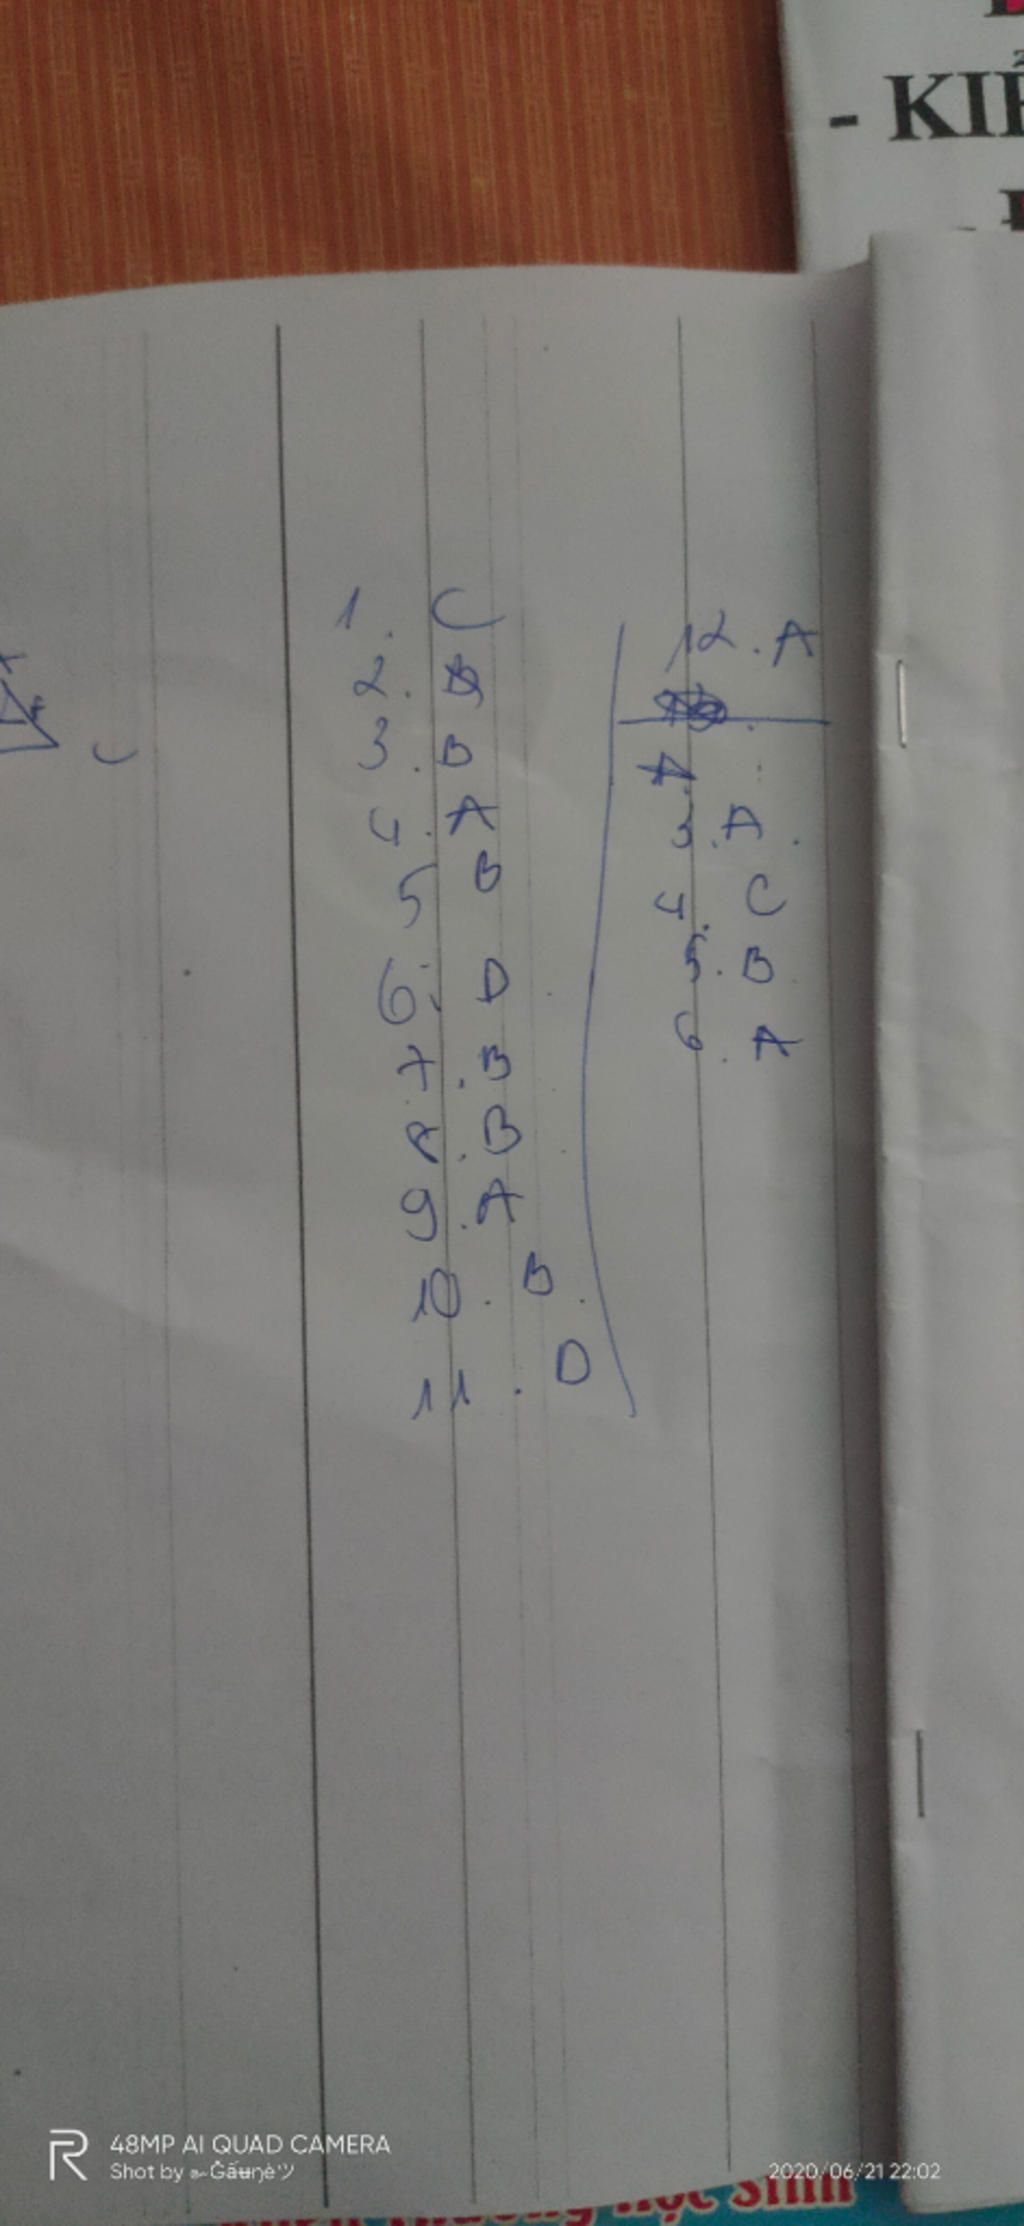 - KIỂ
1. C
2.
3. B
4. A
5 B
6. D
7. B
8. B
9. A
10. B.
11. D
12. A
3. A.
4. C
5. B
6. A
48MP AI QUAD CAMERA
Shot by
2020/06/21 22:02
Học Sinh